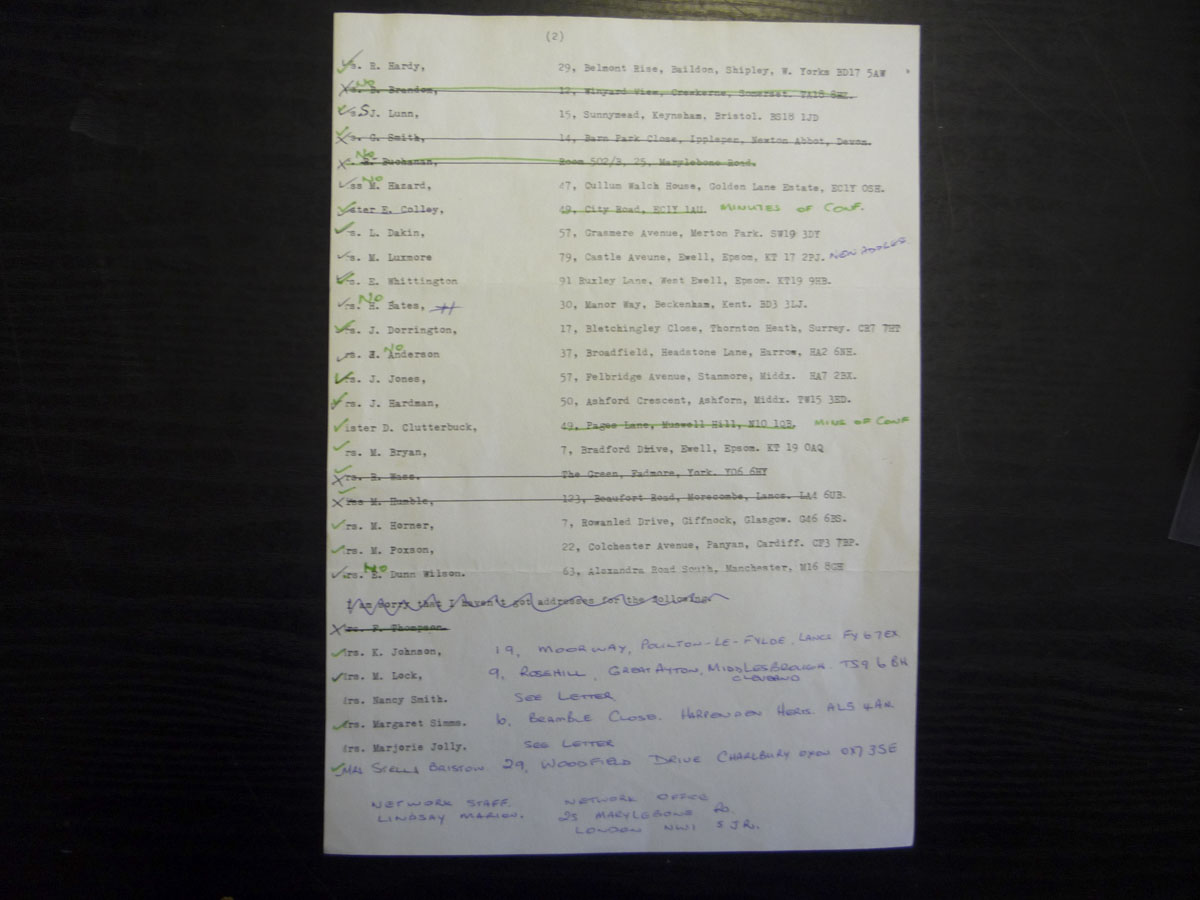 (2)
rs. R. Hardy, 29, Belmont Rise, Baildon, Shipley, W. Yorks BD17 5AW
No
rs. B. Brandon, 12, Winyard View, Crewkerne, Somerset. TA18
rs. S J. Lunn, 15, Sunnymead, Keynsham, Bristol. BS18 1JD
rs. G. Smith, 14, Barn Park Close, Ipplepen, Newton Abbot, Devon.
No
Buchanan, Room 502/3, 25, Marylebone Road.
No
ss M. Hazard, 47, Cullum Walch House, Golden Lane Estate, EC1Y OSH.
ster E. Colley, 49, City Road, EC1Y 1AU. MINUTES OF CONF.
rs. L. Dakin, 57, Grasmere Avenue, Merton Park. SW19 3DY
rs. M. Luxmore 79, Castle Aveune, Ewell, Epsom, KT 17 2PJ. NEW ADDRESS
rs. E. Whittington 91 Ruxley Lane, West Ewell, Epsom. KT19 9HB.
No
rs. H. Bates, 30, Manor Way, Beckenham, Kent. BD3 3LJ.
rs. J. Dorrington, 17, Bletchingley Close, Thornton Heath, Surrey. CR7 7HT
No
rs. Anderson 37, Broadfield, Headstone Lane, Harrow, HA2 6NH.
rs. J. Jones, 57, Felbridge Avenue, Stanmore, Middx. HA7 2BX.
rs. J. Hardman, 50, Ashford Crescent, Ashforn, Middx. TW15 3ED.
ister D. Clutterbuck, 49, Pages Lane, Muswell Hill, N10 1QB. MINS OF CONF
rs. M. Bryan, 7, Bradford Drive, Ewell, Epsom. KT 19 OAQ
rs. B. Wass. The Green, Fadmore, York. YO6 6HY
M. Humble, 123, Beaufort Road, Morecombe, Lancs. LA4 6UB.
rs. M. Horner, 7, Rowanled Drive, Giffnock, Glasgow. G46 6BS.
rs. M. Foxson, 22, Colchester Avenue, Panyan, Cardiff. CF3 7BP.
No
rs. E. Dunn Wilson. 63, Alexandra Road South, Manchester, M16 8GH
I am sorry that I haven't got addresses for the following.
rs. F. Thompson.
rs. K. Johnson, 19, MOORWAY, POULTON-LE-FYLDE. LANCS FY6 7EX
rs. M. Lock, 9, ROSEHILL, GREAT AYTON, MIDDLESBROUGH. TS9 6BH
CLEVELAND
rs. Nancy Smith. SEE LETTER
rs. Margaret Simms. 6, BRAMBLE CLOSE. HARPENDEN HERTS. AL5 4AN
rs. Marjorie Jolly. SEE LETTER
MRS STELLA BRISTOW. 29, WOODFIELD DRIVE CHARLBURY OXON OX7 3SE
NETWORK STAFF. NETWORK OFFICE
LINDSAY MARION. 25 MARYLEBONE RD.
LONDON NW1 5JR.